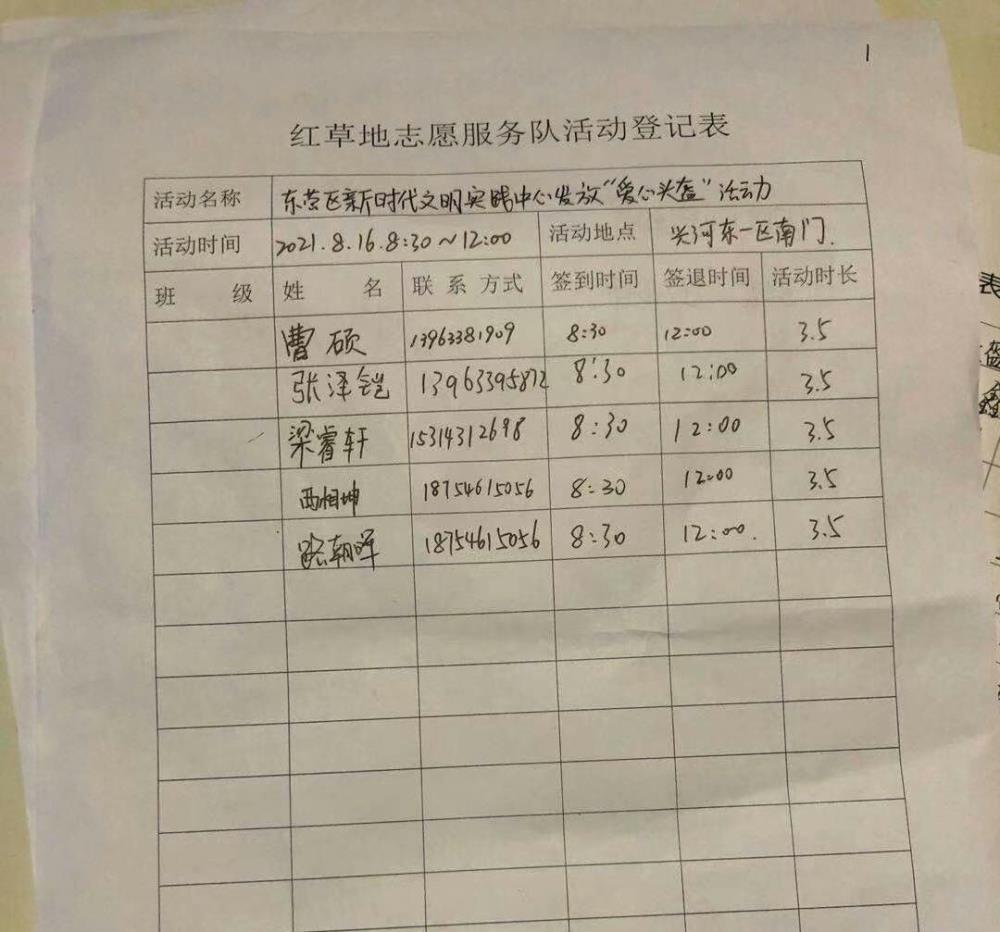 1
红草地志愿服务队活动登记表
活动名称 东营区新时代文明实践中心发放“爱心头盔”活动
活动时间 2021.8.16.8:30~12:00 活动地点 兴河东一区南门.
班 级 姓 名 联系方式 签到时间 签退时间 活动时长
曹硕 13963381909 8:30 12:00 3.5
张泽铠 13963395872 8:30 12:00 3.5
梁睿轩 15314312698 8:30 12:00 3.5
西相坤 18754615056 8:30 12:00 3.5
路朝晖 18754615056 8:30 12:00. 3.5
表
盔